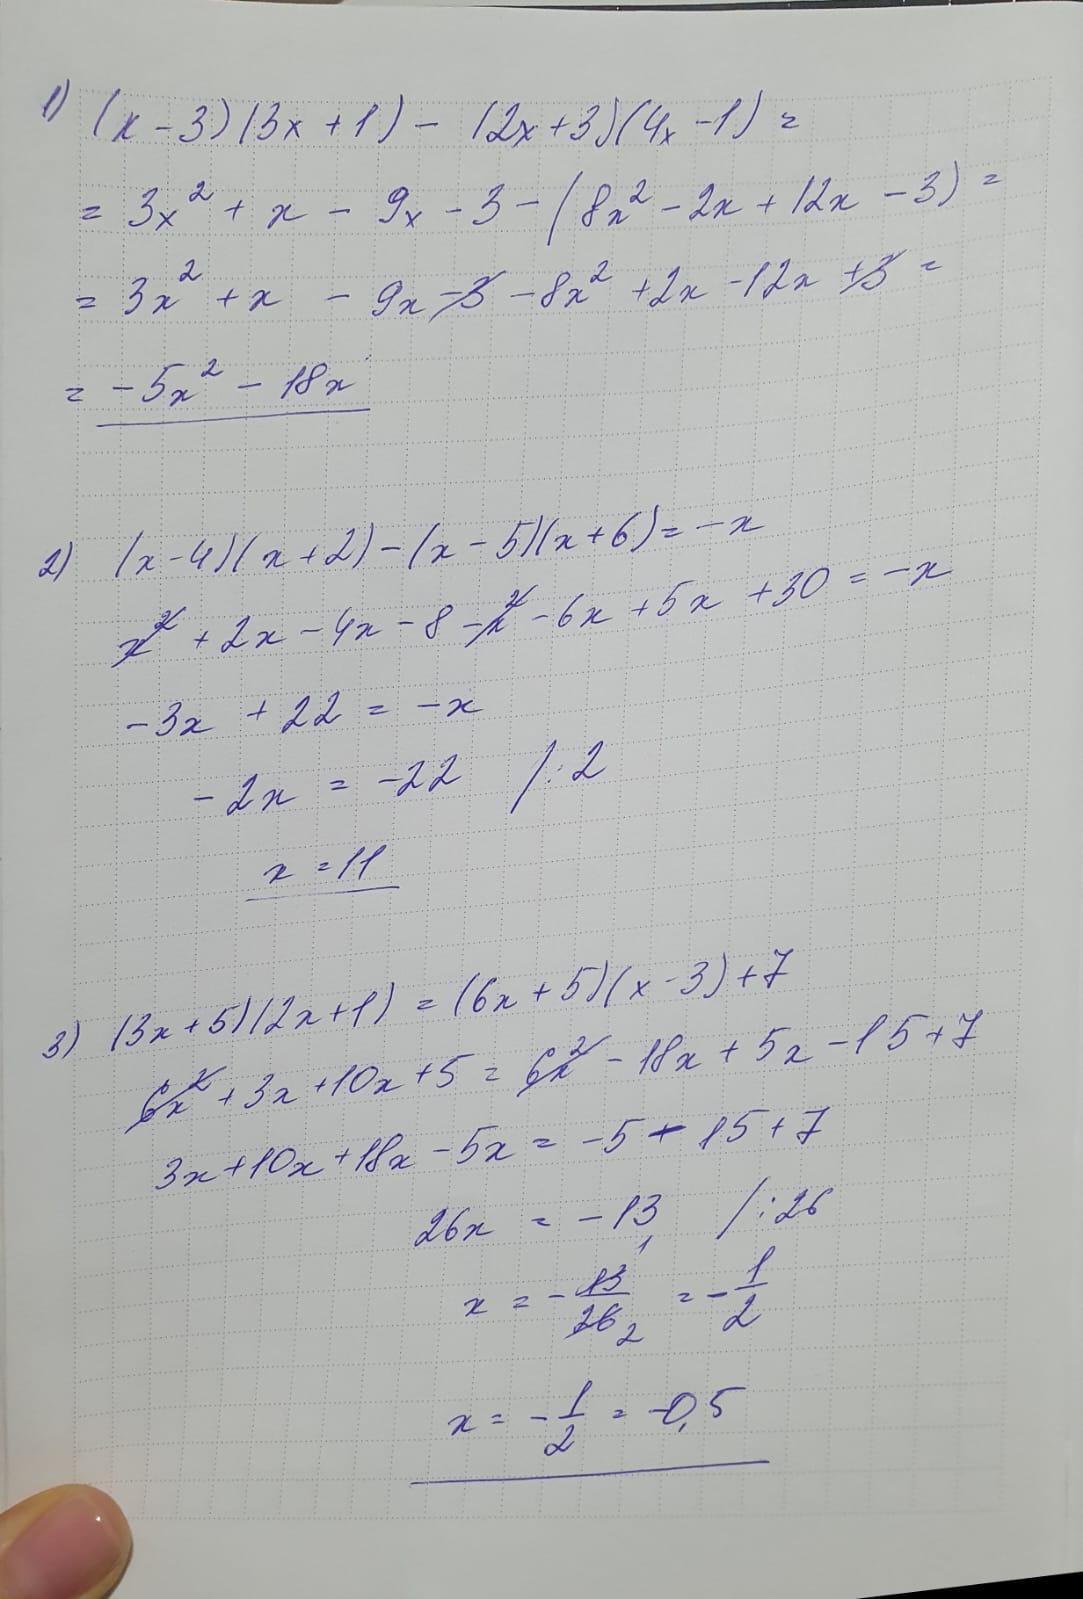 1) (x - 3)(3x + 1) - (2x + 3)(4x - 1) =
= 3x² + x - 9x - 3 - (8x² - 2x + 12x - 3) =
= 3x² + x - 9x - 3 - 8x² + 2x - 12x + 3 =
= - 5x² - 18x
2) (x - 4)(x + 2) - (x - 5)(x + 6) = - x
x² + 2x - 4x - 8 - x² - 6x + 5x + 30 = - x
- 3x + 22 = - x
- 2x = - 22 /: 2
x = 11
3) (3x + 5)(2x + 1) = (6x + 5)(x - 3) + 7
6x² + 3x + 10x + 5 = 6x² - 18x + 5x - 15 + 7
3x + 10x + 18x - 5x = - 5 - 15 + 7
26x = - 13 /: 26
x = - 13/26 1 2 = - 1/2
x = - 1/2 = - 0,5